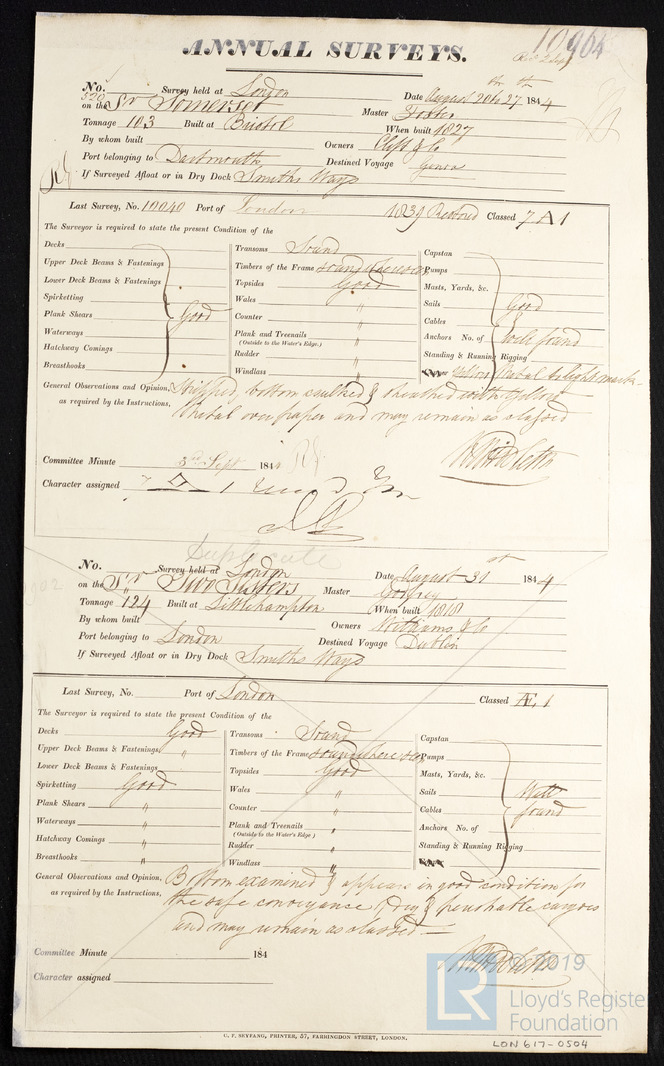 10964
ANNUAL SURVEYS.
No. 520 Survey held at London Date August 20th & 27th 1844
on the Sr Somerset Master Foster
Tonnage 103 Built at Bristol When built 1827
By whom built Owners Clift & Co
Port belonging to Dartmouth Destined Voyage Genoa
If Surveyed Afloat or in Dry Dock Smiths Ways
Last Survey, No. 10040 Port of London 1839 Restored Classed 7 A 1
The Surveyor is required to state the present Condition of the
Decks Transoms Sound Capstan
Upper Deck Beams & Fastenings Timbers of the Frame sound where seen Pumps
Lower Deck Beams & Fastenings Topsides Good Masts, Yards, &c.
Spirketting Wales " Sails Good
Plank Shears Good Counter " Cables &
Waterways Plank and Treenails " Anchors No. of Well found
(Outside to the Water's Edge.)
Hatchway Comings Rudder " Standing & Running Rigging
Breasthooks Windlass " Yellow Metal to light mark.
General Observations and Opinion, Stripped, bottom caulked & sheathed with Yellow
as required by the Instructions. Metal over paper and may remain as classed
Committee Minute 3rd Sept 184
Character assigned 7 A 1
Duplicate
No. Survey held at London Date August 31st 1844
on the Sr Two Sisters Master Godfrey
Tonnage 124 Built at Littlehampton When built 1818
By whom built Owners Williams & Co
Port belonging to London Destined Voyage Dublin
If Surveyed Afloat or in Dry Dock Smiths Ways
Last Survey, No. Port of London Classed Æ 1
The Surveyor is required to state the present Condition of the
Decks Good Transoms Sound Capstan
Upper Deck Beams & Fastenings " Timbers of the Frame sound where seen Pumps
Lower Deck Beams & Fastenings Topsides Good Masts, Yards, &c.
Spirketting Good Wales " Sails Well
Plank Shears " Counter " Cables found
Waterways " Plank and Treenails " Anchors No. of
(Outside to the Water's Edge.)
Hatchway Comings " Rudder " Standing & Running Rigging
Breasthooks " Windlass "
General Observations and Opinion, Bottom examined & appears in good condition for
as required by the Instructions. the safe conveyance of dry & perishable cargoes
and may remain as classed
Committee Minute 184
Character assigned
LR © 2019
Lloyd's Register
Foundation
C. F. SEYFANG, PRINTER, 57, FARRINGDON STREET, LONDON.
LON 617-0504